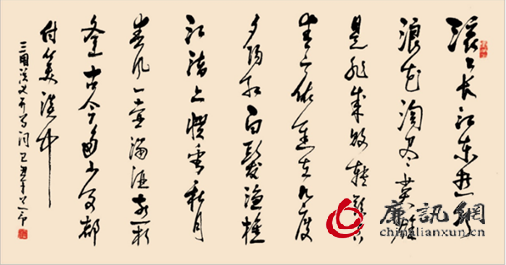 滚滚长江东逝水
浪花淘尽英雄
是非成败转头空
青山依旧在几度
夕阳红白髮渔樵
江渚上惯看秋月
春风一壶浊酒喜相
逢古今多少事都
付笑谈中
三国演义开篇词己丑年
廉訊網
chinalianxun.cn